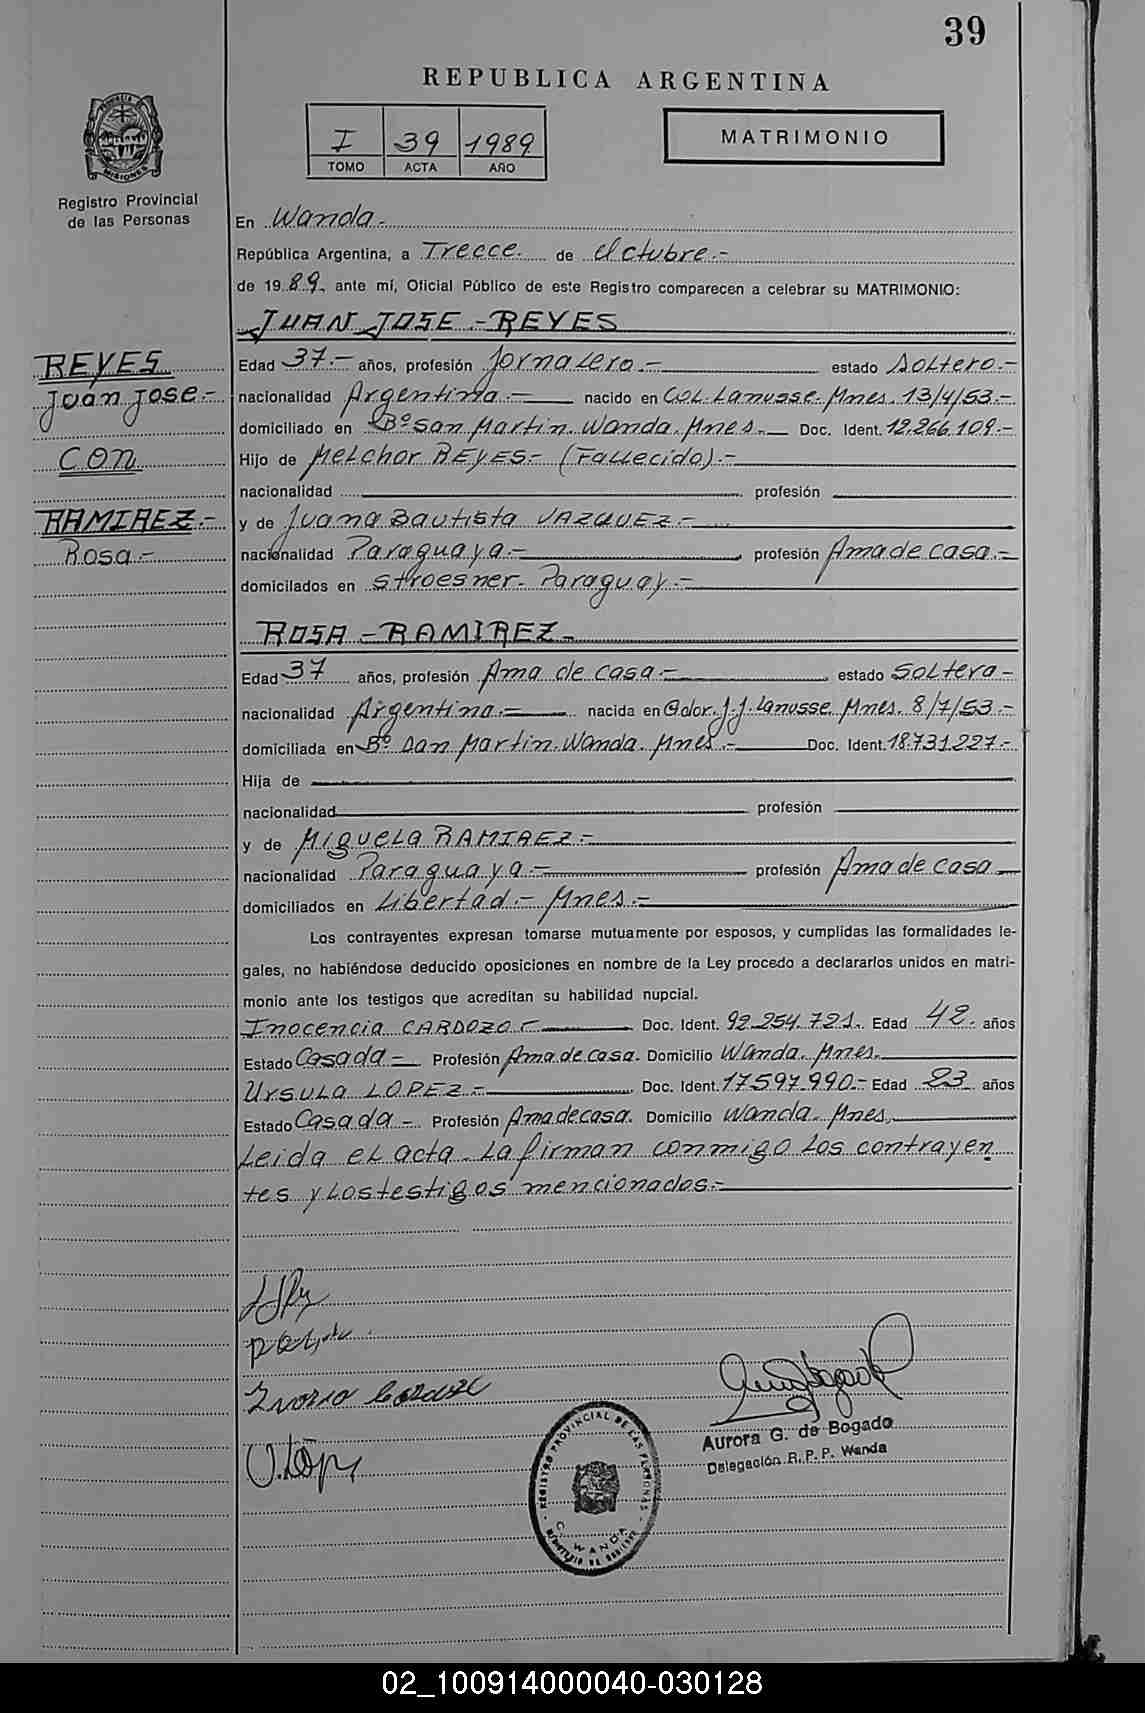 39
REPUBLICA ARGENTINA
I 39 1989
TOMO ACTA AÑO
MATRIMONIO
PROVINCIA DE MISIONES
Registro Provincial
de las Personas
En Wanda.-
República Argentina, a Trecce. de Octubre.-
de 1989. ante mí, Oficial Público de este Registro comparecen a celebrar su MATRIMONIO:
JUAN JOSE.-REYES
REYES
Juan Jose.-
CON
RAMIREZ.-
Rosa.-
Edad 37.- años, profesión Jornalero.- estado Soltero.-
nacionalidad Argentina.- nacido en COL. Lanusse. Mnes. 13/4/53.-
domiciliado en Bº San Martin. Wanda. Mnes.- Doc. Ident. 12.266.109.-
Hijo de Melchor REYES.- (Fallecido).-
nacionalidad profesión
y de Juana Bautista VAZQUEZ.-
nacionalidad Paraguaya.- profesión Ama de casa.-
domicilados en Stroesner. Paraguay.-
ROSA-RAMIREZ-
Edad 37 años, profesión Ama de casa.- estado Soltera-
nacionalidad Argentina.- nacida en Gdor. J.J. Lanusse. Mnes. 8/7/53.-
domiciliada en Bº San Martin. Wanda. Mnes.- Doc. Ident. 18.731.227.-
Hija de
nacionalidad profesión
y de Miguela RAMIREZ.-
nacionalidad Paraguaya.- profesión Ama de casa
domiciliados en Libertad.- Mnes.-
Los contrayentes expresan tomarse mutuamente por esposos, y cumplidas las formalidades le-
gales, no habiéndose deducido oposiciones en nombre de la Ley procedo a declararlos unidos en matri-
monio ante los testigos que acreditan su habilidad nupcial.
Inocencia CARDOZO.- Doc. Ident. 92.254.721. Edad 42. años
Estado Casada- Profesión Ama de casa. Domicilio Wanda. Mnes.
Ursula LOPEZ.- Doc. Ident. 17.597.990.- Edad 23 años
Estado Casada- Profesión Ama de casa. Domicilio Wanda. Mnes.
Leida el acta. La firman conmigo los contrayen
tes y los testigos mencionados.-
Aurora G. de Bogado
Delegación R. P. P. Wanda
REGISTRO PROVINCIAL DE LAS PERSONAS
WANDA
MINISTERIO DE GOBIERNO
02_100914000040-030128